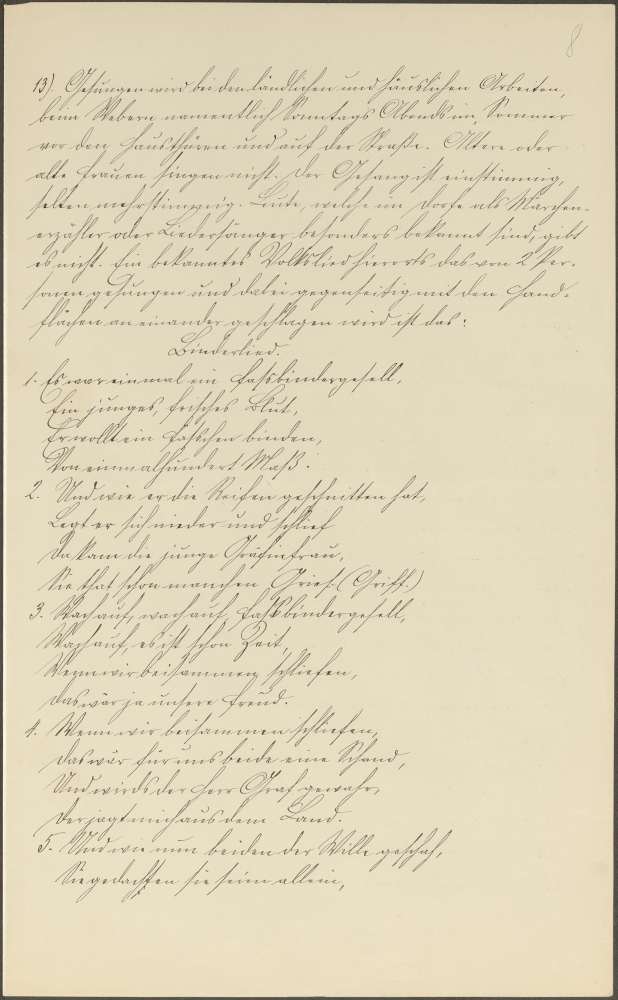 8
13). Gesungen wird bei den ländlichen und häuslichen Arbeiten,
beim Webern namentlich Sonntags Abends im Sommer
vor den Hausthüren und auf der Straße. Ältere oder
alte Frauen singen nicht. Der Gesang ist einstimmig,
selten mehrstimmig. Leute, welche im Dorfe als Märchen-
erzähler oder Liedersänger besonders bekannt sind, gibt
es nicht. Ein bekanntes Volkslied hierorts das von 2 Per-
sonen gesungen und dabei gegenseitig mit den Hand-
flächen an einander geschlagen wird ist das:
Binderlied.
1. Es war einmal ein Fassbindergesell,
Ein junges, frisches Blut,
Er wollt ein Fässchen binden,
Von einmalhundert Maß.
2. Und wie er die Reifen geschnitten hat,
Legt er sich nieder und schlief
Da kam die junge Gräfinfrau,
Sie that schon manchen Grief. (Griff.)
3. Wach auf, wach auf, Fassbindergesell,
Wach auf, es ist schon Zeit,
Wenn wir beisammen schliefen,
Das wär ja unsere Freud.
4. Wenn wir beisammen schliefen,
Das wär für uns beide eine Schand,
Und wirds der Herr Graf gewahr,
Der jagt mich aus dem Land.
5. Und wie nun beiden der Wille geschah,
Sie gedachten sie seien allein,